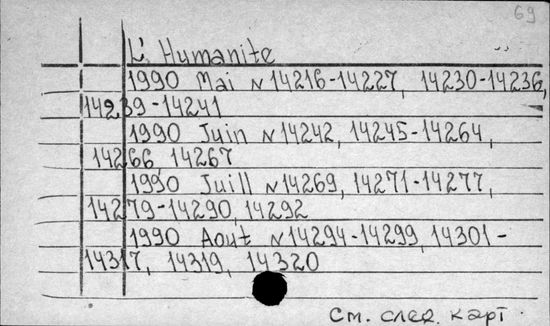 69
L'Humanite
1990 Mai N 14216-14227, 14230-14236,
14239-14241
1990 Juin N 14242, 14245-14264,
14266 14267
1990 Juill N 14269, 14271-14277,
14279-14290, 14292
1990 Aout N 14294-14299, 14301-
14317, 14319, 14320
См. след. карт.